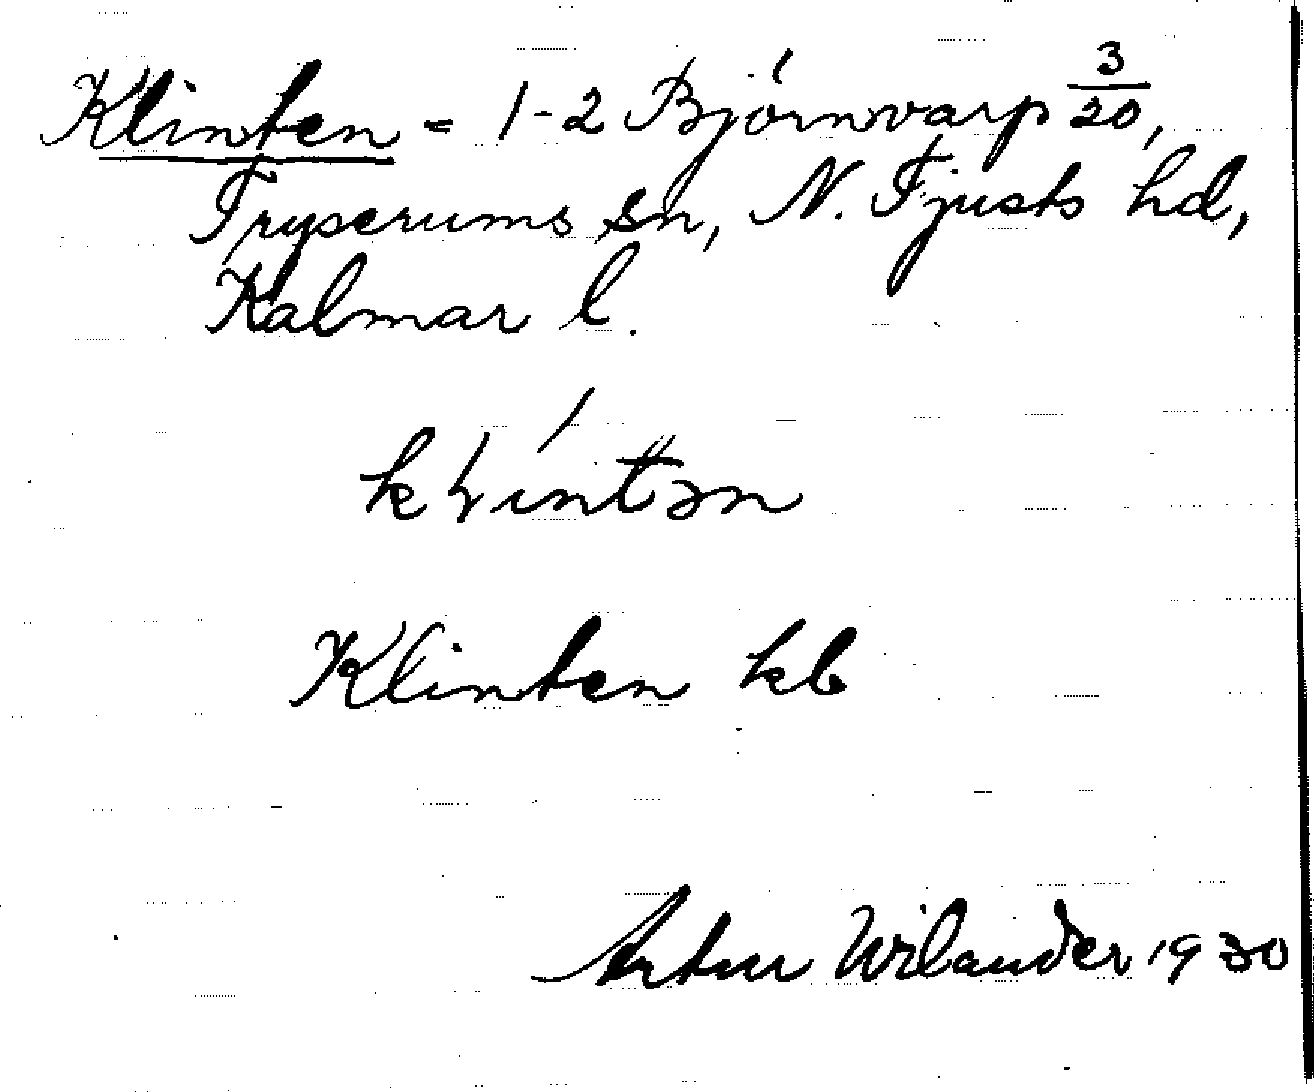 Klinten = 1-2 Björnvarp 3/20,
Tryserums sn, N. Tjusts hd,
Kalmar l.
Klinten kb
Artur Wilander 1930